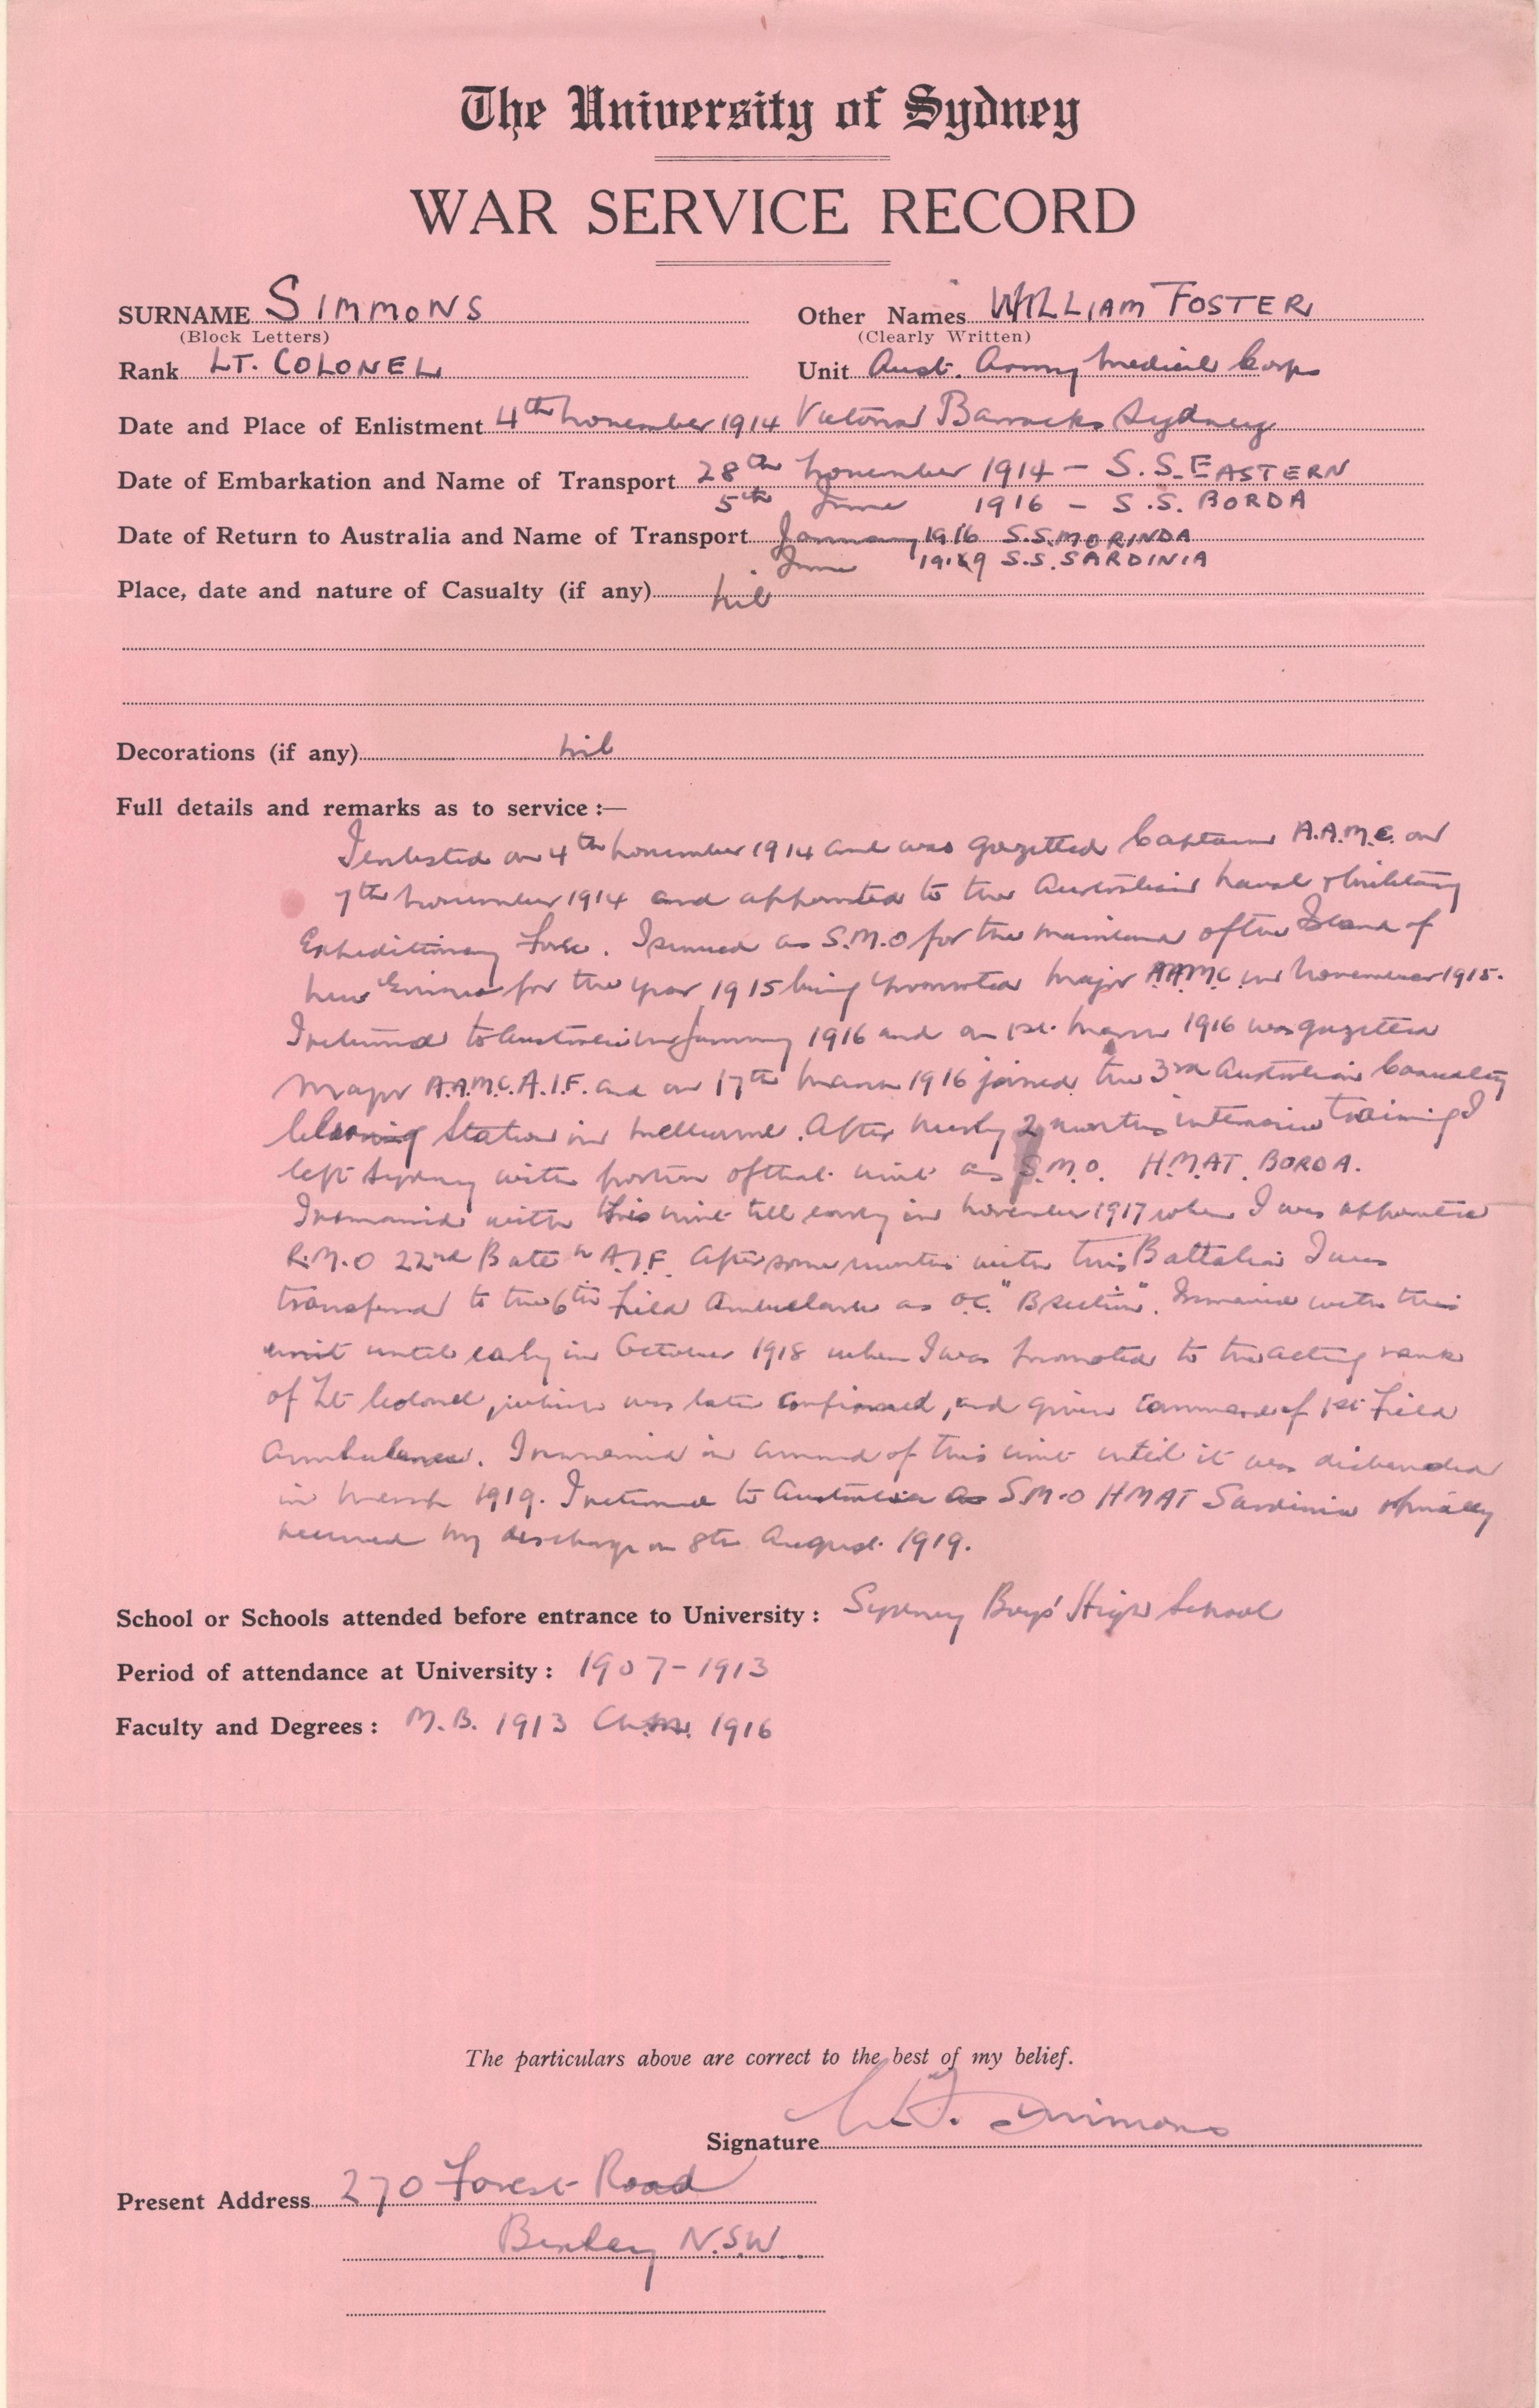 The University of Sydney
WAR SERVICE RECORD
SURNAME SIMMONS Other Names WILLIAM FOSTER
(Block Letters) (Clearly Written)
Rank LT. COLONEL Unit Aust. Army Medical Corps
Date and Place of Enlistment 4th November 1914 Victoria Barracks Sydney
Date of Embarkation and Name of Transport 28th November 1914 - S.S. EASTERN
5th June 1916 - S.S. BORDA
Date of Return to Australia and Name of Transport January 1916 S.S. MORINDA
June 1919 S.S. SARDINIA
Place, date and nature of Casualty (if any) nil
Decorations (if any) nil
Full details and remarks as to service :—
I enlisted on 4th November 1914 and was gazetted Captain A.A.M.C. on
7th November 1914 and appointed to the Australian Naval & Military
Expeditionary Force. I served as S.M.O for the mainland of the Island of
New Guinea for the year 1915 being promoted Major A.A.M.C. in November 1915.
I returned to Australia in January 1916 and on 1st. March 1916 was gazetted
Major A.A.M.C. A.I.F. and on 17th March 1916 joined the 3rd Australian Casualty
Clearing Station in Melbourne. After nearly 2 months intensive training I
left Sydney with portion of that unit as S.M.O. H.M.A.T. BORDA.
I remained with this unit till early in November 1917 when I was appointed
R.M.O 22nd Batt n A.I.F. After some months with this Battalion I was
transferred to the 6th Field Ambulance as O.C. "B Section". I remained with this
unit until early in October 1918 when I was promoted to the acting rank
of Lt Colonel, which was later confirmed, and given command of 1st Field
Ambulance. I remained in command of this unit until it was disbanded
in March 1919. I returned to Australia as S.M.O HMAT Sardinia & finally
received my discharge on 8th August 1919.
School or Schools attended before entrance to University : Sydney Boys' High School
Period of attendance at University : 1907-1913
Faculty and Degrees : M.B. 1913 Ch.M. 1916
The particulars above are correct to the best of my belief.
Signature W.F. Simmons
Present Address 270 Forest Road
Bexley N.S.W.